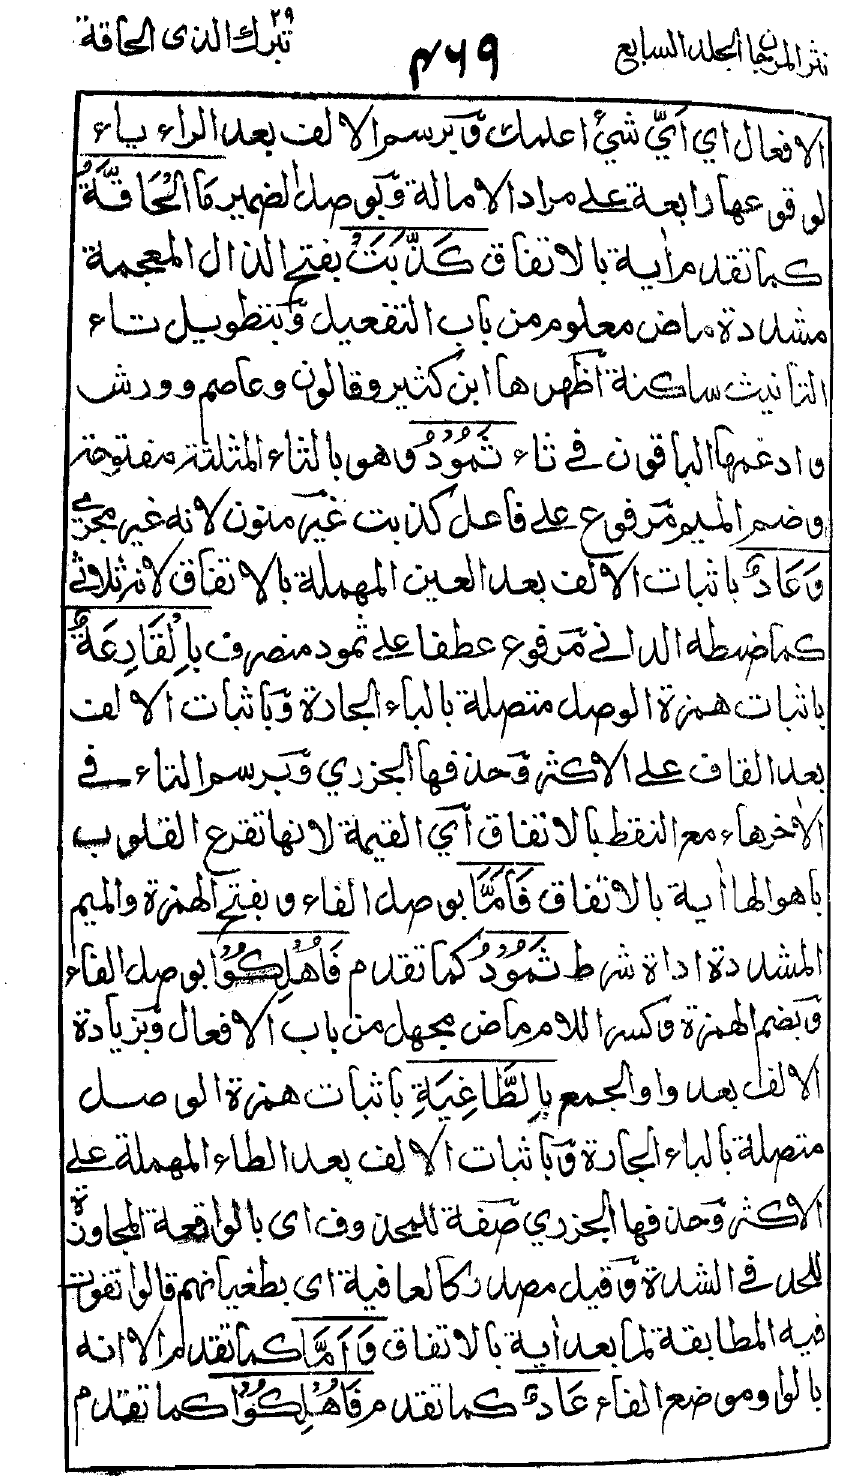 نثر المرجان المجلد السابع
٤٦٩
تبرك الذى ٢٩ الحاقة
الافعال اي أيّ شيئ اعلمك وَبرسم الالف بعد الراء ياء
لوقوعها رابعة على مراد الامالة وَبوصل الضمير مَا الْحَاقَّةُ
كما تقدم اٰية بالاتفاق كَذَّبَتْ بفتح الذال المعجمة
مشددة ماض معلوم من باب التفعيل وَبتطويل تاء
التانيث ساكنة اَظهرها ابن كثير وقالون وعاصم وورش
وادغمها الباقون في ثاء ثَمُوْدُ وهو بالثاء المثلثة مفتوحة
وضم الميم مَرفوع على فاعل كذبت غيرَ منون لانه غير مجرى
وَعَادٌ باثبات الالف بعد العين المهملة بالاتفاق لانه ثلاثي
كما ضبطه الداني مَرفوع عطفا على ثمود منصرف بِالْقَارِعَةِ
باثبات همزة الوصل متصلة بالباء الجارة وَباثبات الالف
بعد القاف على الاكثر وَحذفها الجزري وَبرسم التاء في
الاٰخر هاء مع النقط بالاتفاق أي القيمة لانها تقرع القلوب
باهوالها اٰية بالاتفاق فَاَمَّا بوصل الفاء وبفتح الهمزة والميم
المشددة اداة شرط ثَمُوْدُ كما تقدم فَاُهْلِكُوْا بوصل الفاء
وَبضم الهمزة وكسر اللام ماض مجهول من باب الافعال وَبزيادة
الالف بعد واو الجمع بِالطَّاغِيَةِ باثبات همزة الوصل
متصلة بالباء الجارة وَباثبات الالف بعد الطاء المهملة على
الاكثر وَحذفها الجزري صفة للمحذوف اى بالواقعة المجاوزة
للحد في الشدة وَقيل مصدر كالعافية اى بطغيانهم قالوا تفوت
فيه المطابقة لما بعد اٰية بالاتفاق وَاَمَّا كما تقدم الا انه
بالواو موضع الفاء عَادٌ كما تقدم فَاُهْلِكُوْا كما تقدم